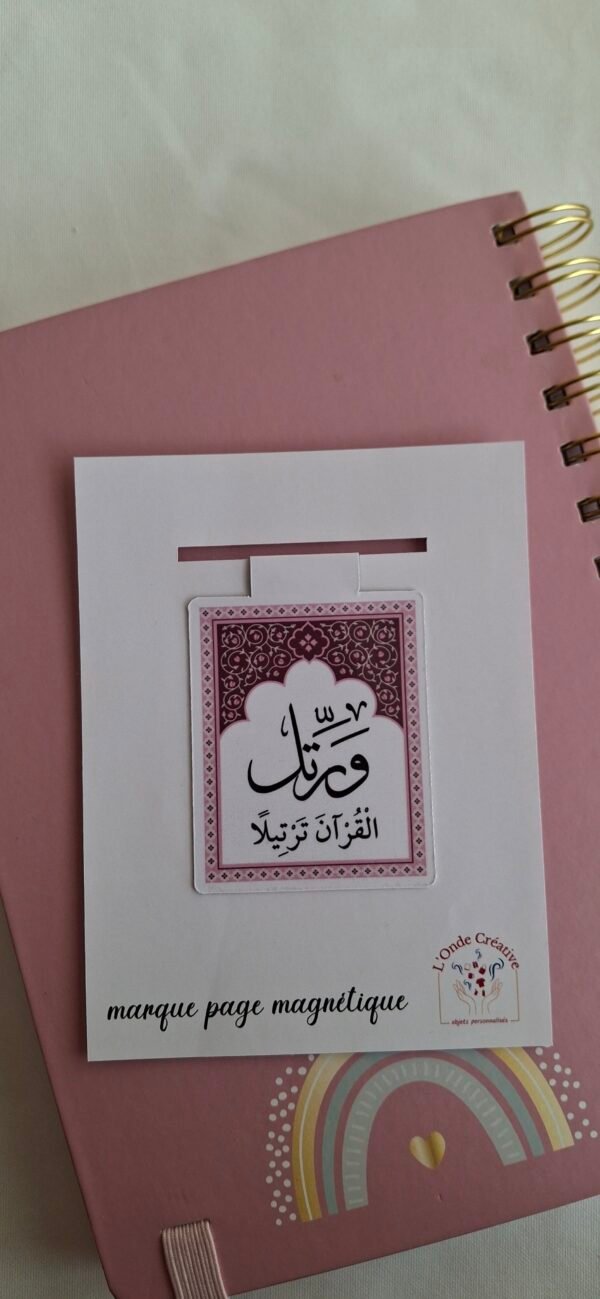 وَرَتِّل
الْقُرْآنَ تَرْتِيلًا
L'Onde Créative
objets personnalisés
marque page magnétique